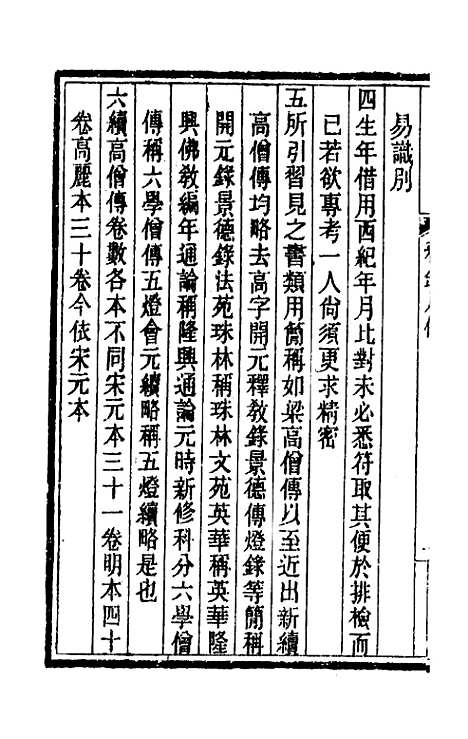 易識別
四生年借用西紀年月比對未必悉符取其便於排檢而
已若欲專考一人尙須更求精密
五所引習見之書類用簡稱如梁高僧傳以至近出新續
高僧傳均略去高字開元釋敎錄景德傳燈錄等簡稱
開元錄景德錄法苑珠林稱珠林文苑英華稱英華隆
興佛敎編年通論稱隆興通論元時新修科分六學僧
傳稱六學僧傳五燈會元續略稱五燈續略是也
六續高僧傳卷數各本不同宋元本三十一卷明本四十
卷高麗本三十卷今依宋元本